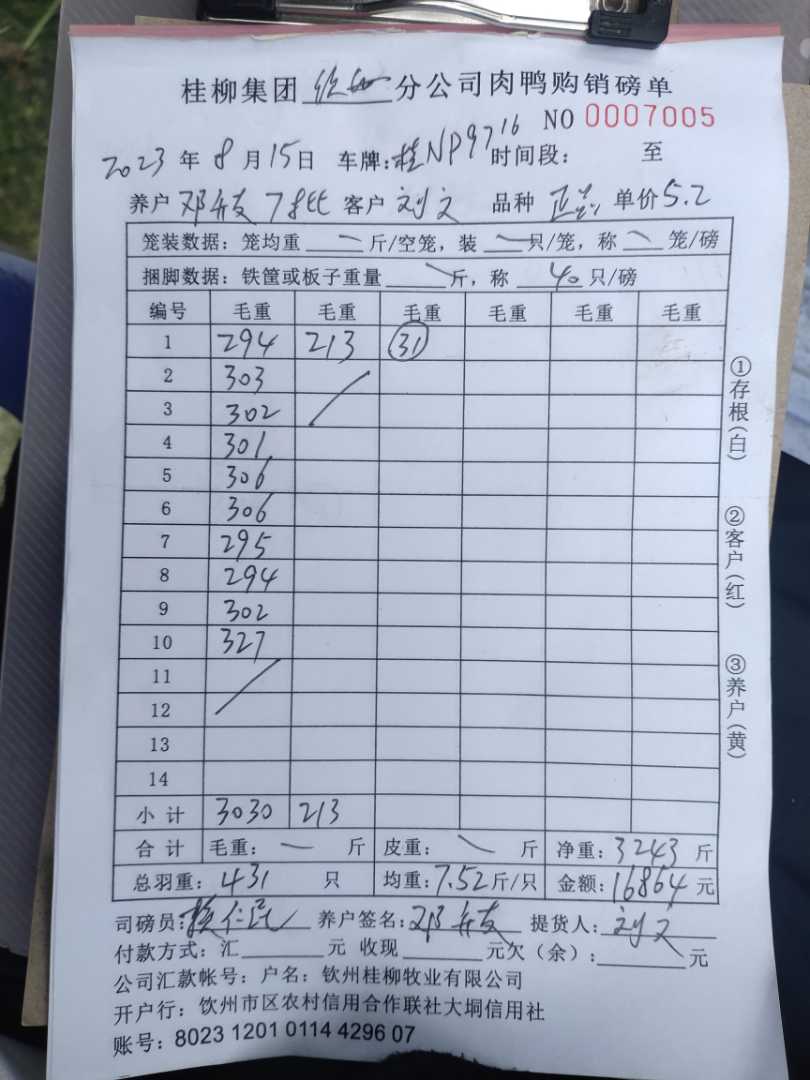 桂柳集团 钦州 分公司肉鸭购销磅单
NO 0007005
2023 年 8 月 15 日 车牌:桂NP9716 时间段: 至
养户 邓 友 78批 客户 刘文 品种 单价 5.2
笼装数据:笼均重 — 斤/空笼,装 — 只/笼,称 — 笼/磅
捆脚数据:铁筐或板子重量 — 斤,称 40 只/磅
编号 毛重 毛重 毛重 毛重 毛重 毛重
1 294 213 31
2 303
3 302
4 301
5 306
6 306
7 295
8 294
9 302
10 327
11
12
13
14
小 计 3030 213
合 计 毛重: — 斤 皮重: — 斤 净重:3243 斤
总羽重: 431 只 均重:7.52 斤/只 金额:16864 元
司磅员: 养户签名:邓 友 提货人:刘文
付款方式:汇 元 收现 元欠(余): 元
公司汇款帐号:户名:钦州桂柳牧业有限公司
开户行:钦州市区农村信用合作联社大垌信用社
账号:8023 1201 0114 4296 07
①存根(白)
②客户(红)
③养户(黄)